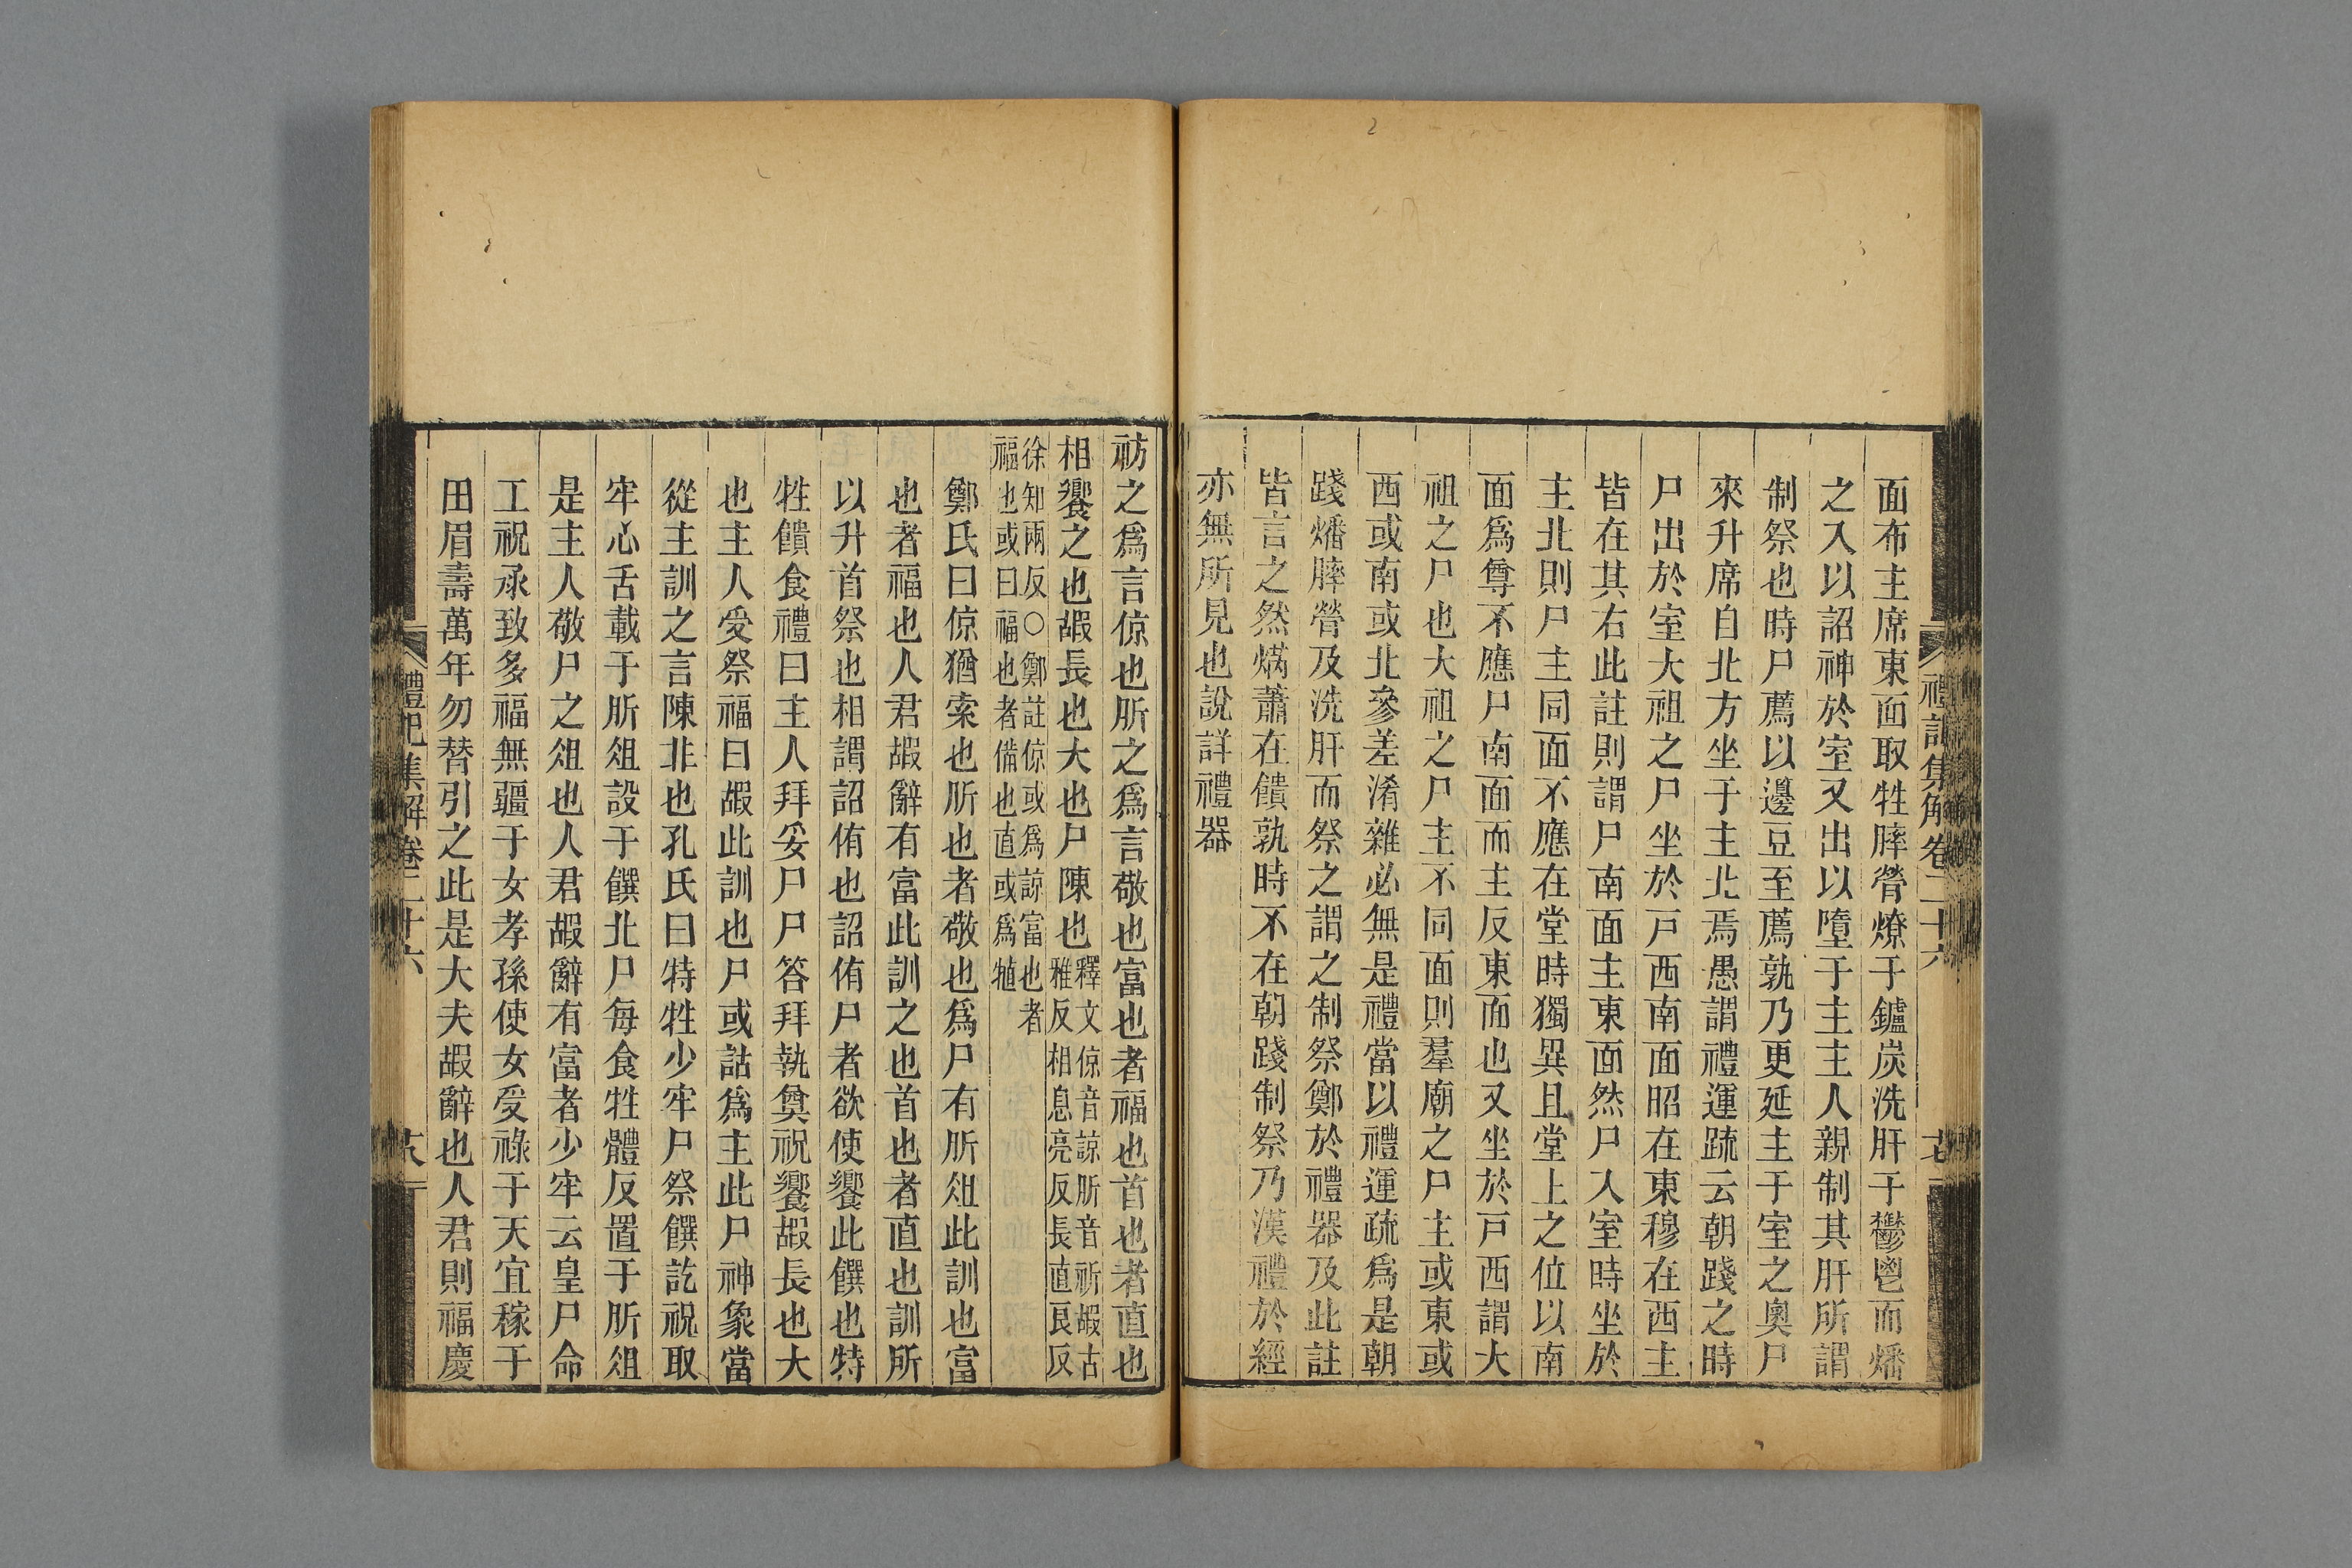 禮記集解卷二十六
面布主席東面取牲膟膋燎于鑪炭洗肝于鬱鬯而燔
之入以詔神於室又出以墮于主主人親制其肝所謂
制祭也時尸薦以籩豆至薦孰乃更延主于室之奧尸
來升席自北方坐于主北焉愚謂禮運疏云朝踐之時
尸出於室大祖之尸坐於戸西南面昭在東穆在西主
皆在其右此註則謂尸南面主東面然尸入室時坐於
主北則尸主同面不應在堂時獨異且堂上之位以南
面爲尊不應尸南面而主反東面也又坐於戸西謂大
祖之尸也大祖之尸主不同面則羣廟之尸主或東或
西或南或北參差淆雜必無是禮當以禮運疏爲是朝
踐燔膟膋及洗肝而祭之謂之制祭鄭於禮器及此註
皆言之然焫蕭在饋孰時不在朝踐制祭乃漢禮於經
亦無所見也說詳禮器
祊之爲言倞也肵之爲言敬也富也者福也首也者直也
相饗之也嘏長也大也尸陳也釋文倞音諒肵音祈嘏古
雅反相息亮反長直良反
徐知兩反○鄭註倞或爲諒富也者
福也或曰福也者備也直或爲犆
鄭氏曰倞猶索也肵也者敬也爲尸有肵俎此訓也富
也者福也人君嘏辭有富此訓之也首也者直也訓所
以升首祭也相謂詔侑也詔侑尸者欲使饗此饌也特
牲饋食禮曰主人拜妥尸尸答拜執奠祝饗嘏長也大
也主人受祭福曰嘏此訓也尸或詁爲主此尸神象當
從主訓之言陳非也孔氏曰特牲少牢尸祭饌訖祝取
牢心舌載于肵俎設于饌北尸每食牲體反置于肵俎
是主人敬尸之俎也人君嘏辭有富者少牢云皇尸命
工祝承致多福無疆于女孝孫使女受祿于天宜稼于
田眉壽萬年勿替引之此是大夫嘏辭也人君則福慶
禮記集解卷二十六